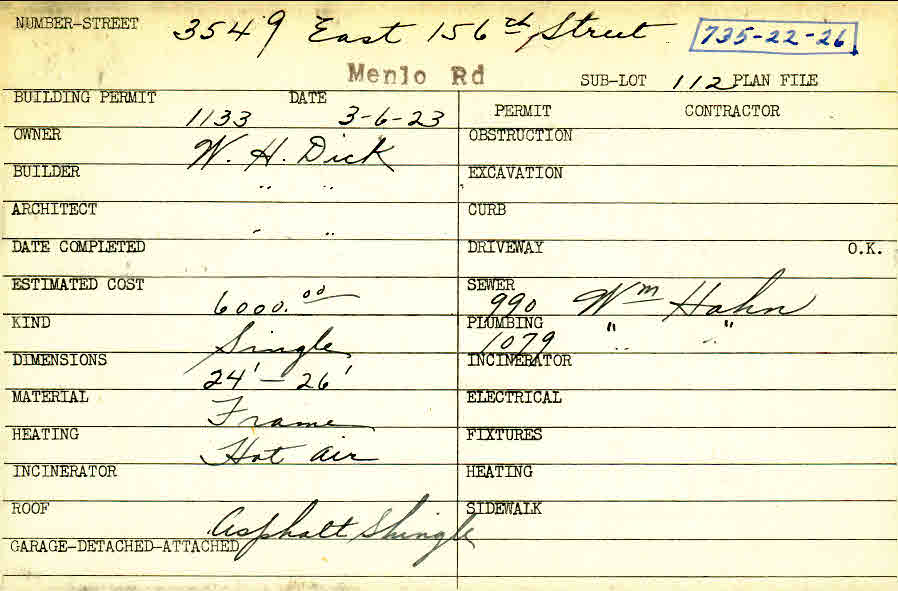 NUMBER-STREET 3549 East 156th Street 735-22-26
Menlo Rd SUB-LOT 112 PLAN FILE
BUILDING PERMIT 1133 DATE 3-6-23 PERMIT CONTRACTOR
OWNER W. H. Dick OBSTRUCTION
BUILDER " " EXCAVATION
ARCHITECT " " CURB
DATE COMPLETED DRIVEWAY O.K.
ESTIMATED COST 6000.00 SEWER 990 Wm Hahn
KIND Single PLUMBING 1079 " "
DIMENSIONS 24' - 26' INCINERATOR
MATERIAL Frame ELECTRICAL
HEATING Hot air FIXTURES
INCINERATOR HEATING
ROOF Asphalt Shingle SIDEWALK
GARAGE-DETACHED-ATTACHED